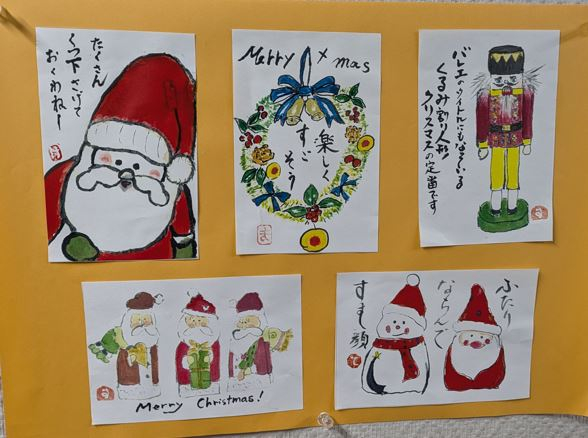 たくさん
くつ下さげて
おくわねー
Merry Xmas
楽しく
すごそう
バレエのタイトルにもなっている
くるみ割り人形!
クリスマスの定番です
Merry Christmas!
ふたり
ならんで
すまし顔